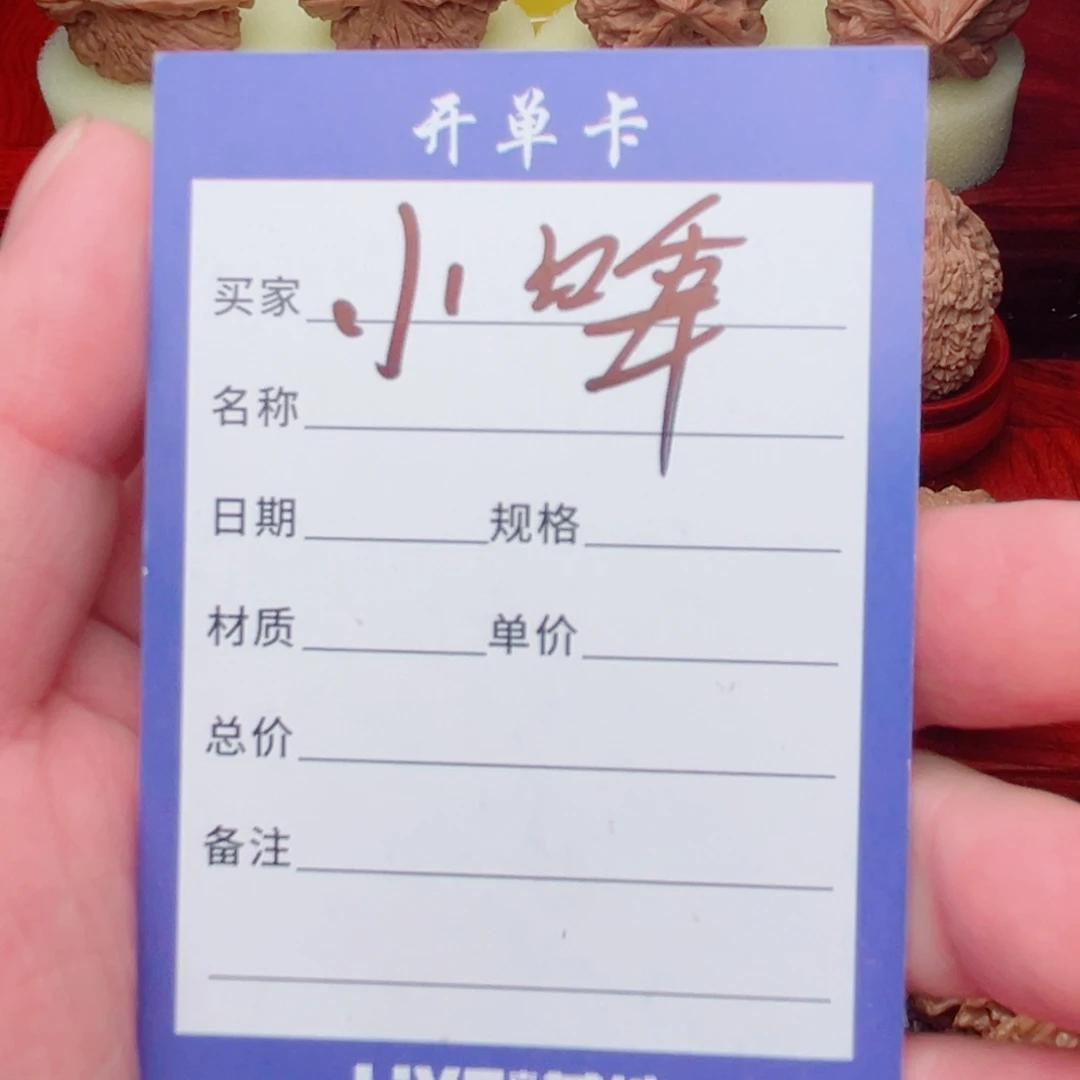 开单卡
买家 小
名称
日期 规格
材质 单价
总价
备注